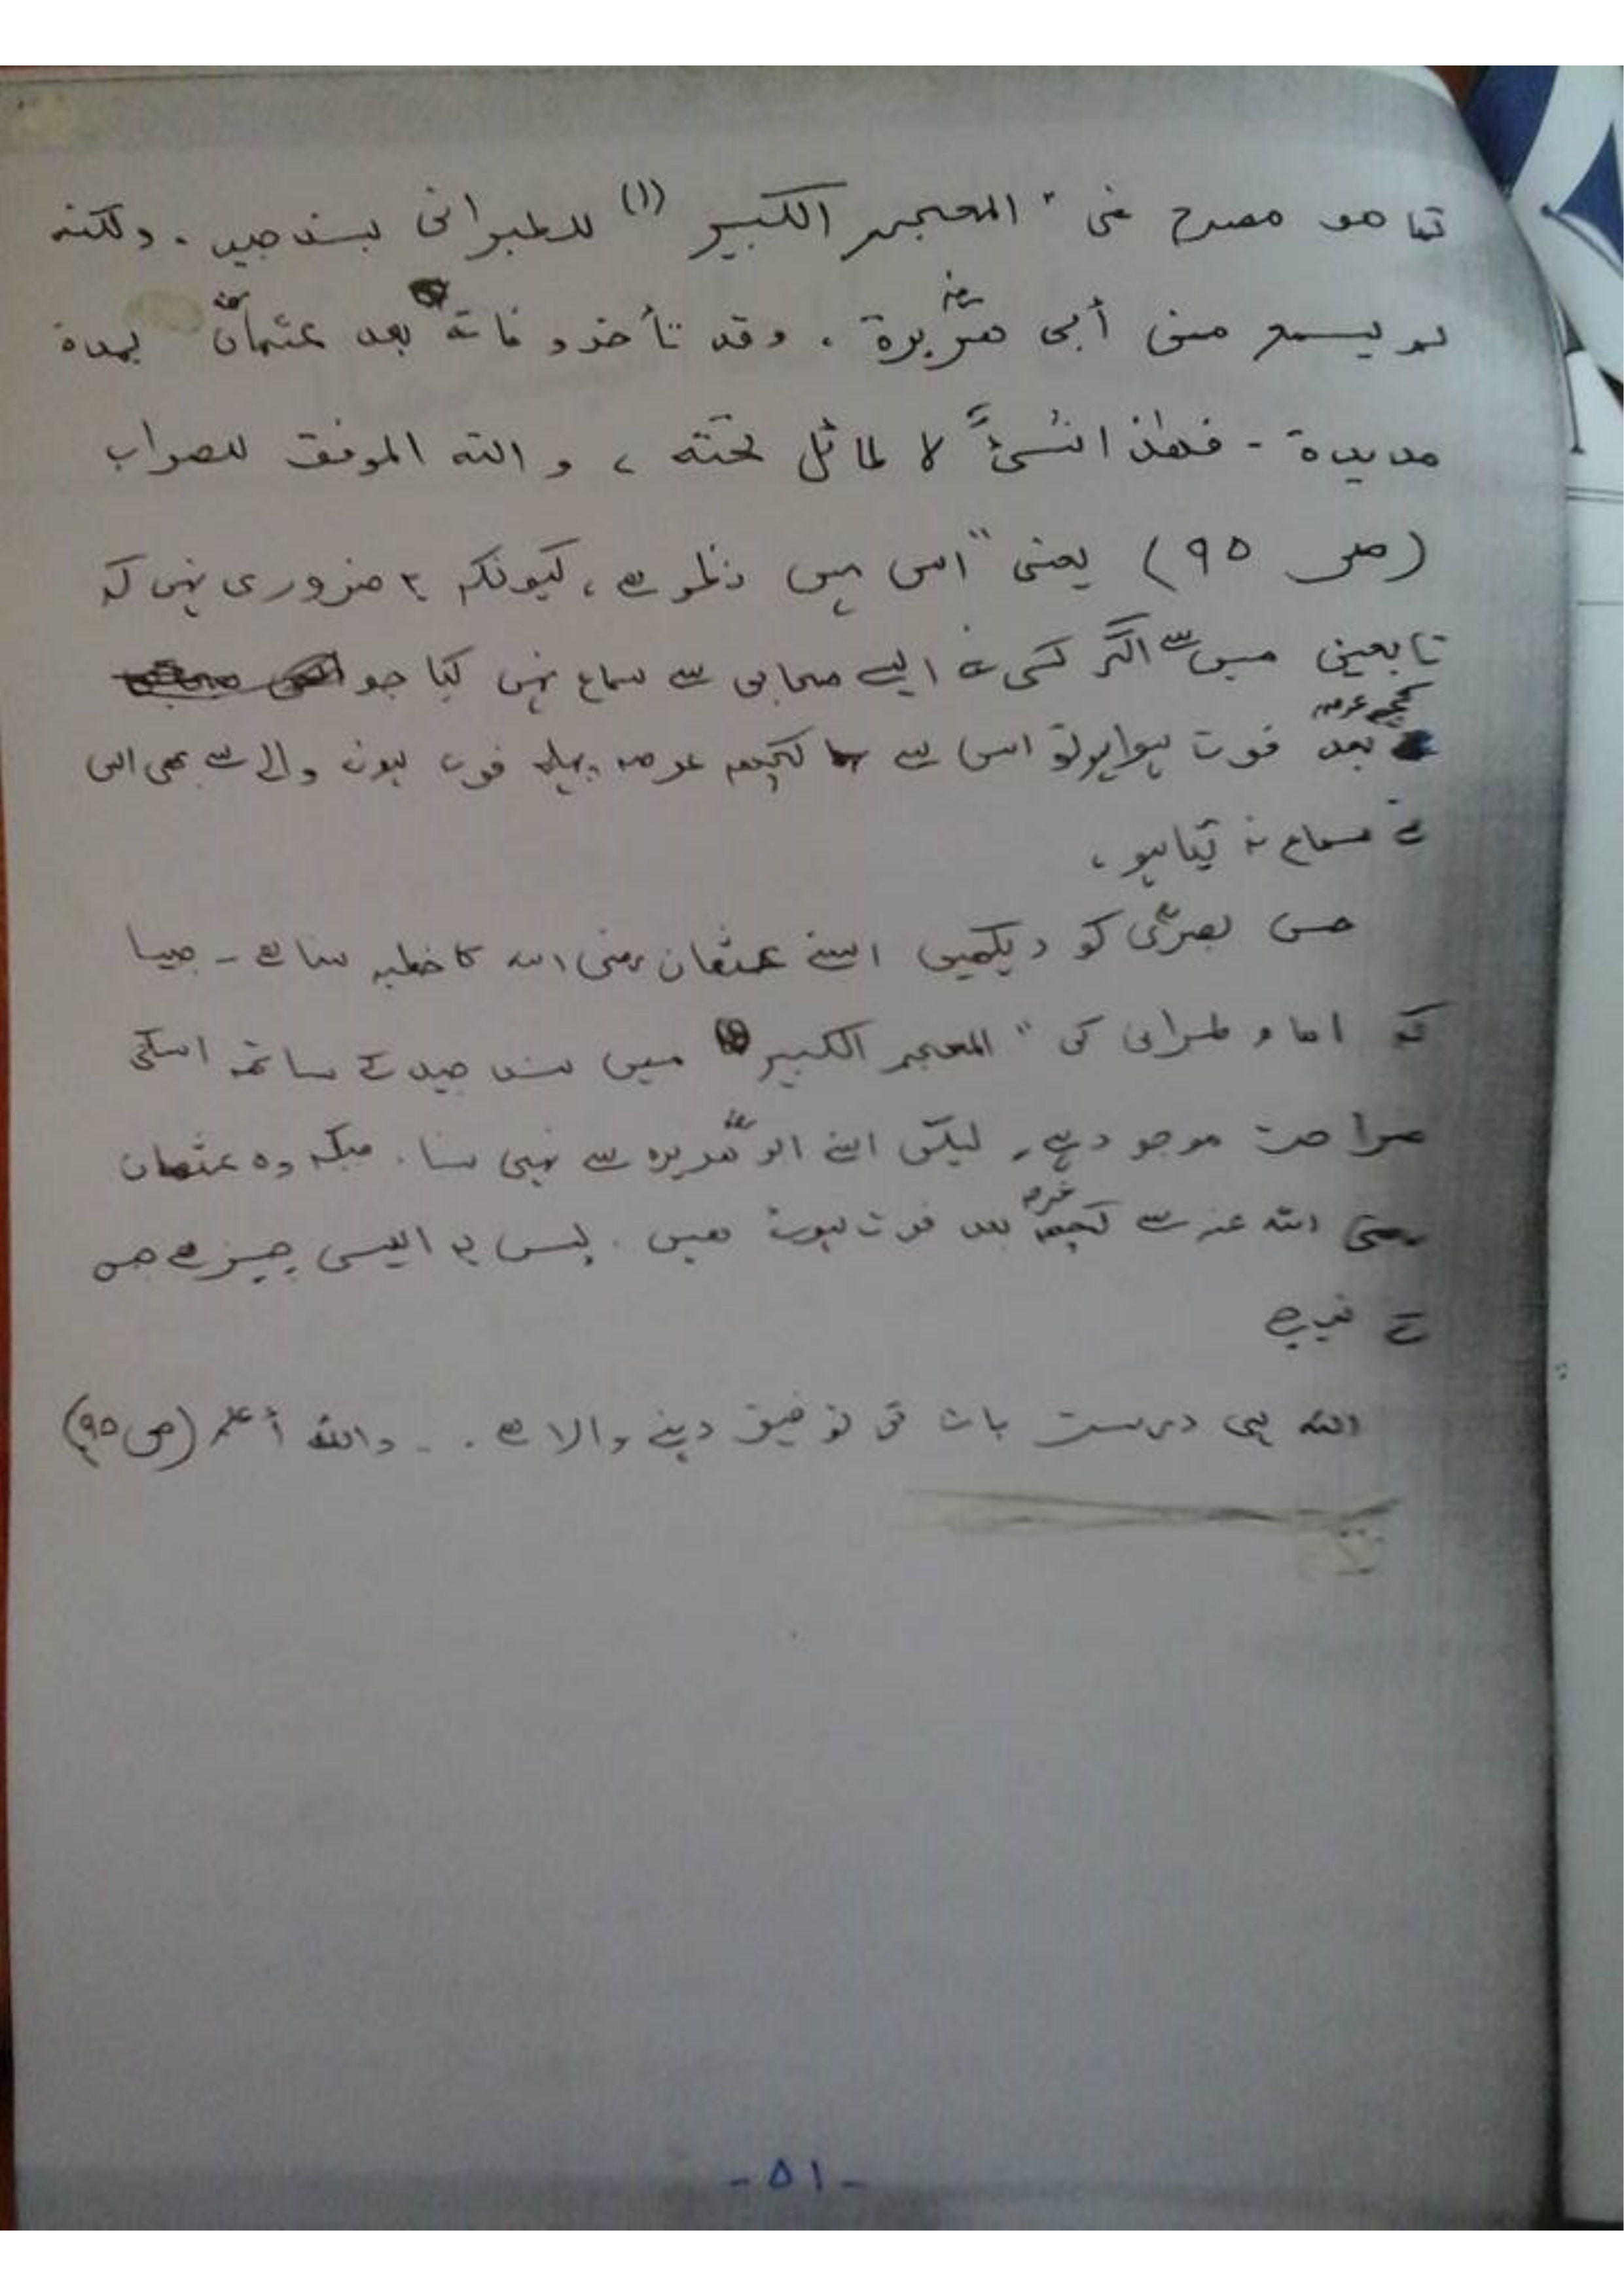 كما هو مصرح فى "المعجم الكبير (١) للطبرانى بسند جيد . ولكنه
لم يسمع من أبى هريرةؓ ، وقد تأخر وفاته بعد عثمانؓ بمدة
مديدة - فهذا الشئ لا طائل تحته ، و الله الموفق للصواب
(ص ٩٥) یعنی "اس میں نظر ہے ، کیونکہ یہ ضروری نہیں کہ
تابعین میں سے اگر کسی نے ایسے صحابی سے سماع نہیں کیا جو
کچھ عرصہ بعد فوت ہوا ہو تو اس سے کچھ عرصہ پہلے فوت ہونے والے سے بھی اس
نے سماع نہ کیا ہو ،
حسن بصریؒ کو دیکھیں اسنے عثمان رضی اللہ کا خطبہ سنا ہے - جیسا
کہ امام طبرانی کی "المعجم الکبیر" میں سند جید کے ساتھ اسکی
صراحت موجود ہے , لیکن اسنے ابو ھریرہؓ سے نہیں سنا . جبکہ وہ عثمان
رضی اللہ عنہ سے کچھ عرصہ بعد فوت ہوئے ھیں . پس یہ ایسی چیز ہے جس
کے
اللہ ہی درست بات کی توفیق دینے والا ہے . .. واللہ أعلم (ص ٩٥)
- ٥١ -